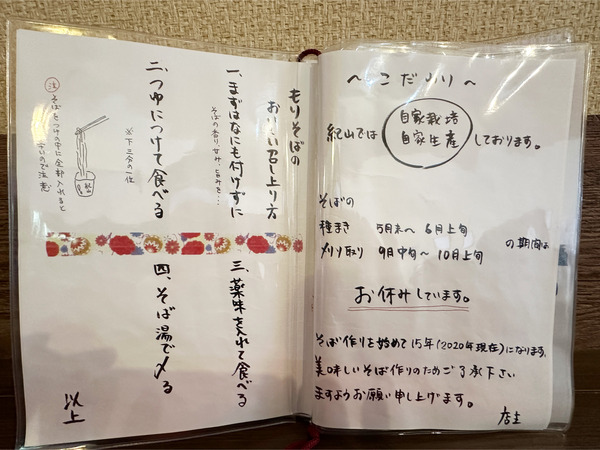 もりそばの
おいしい召し上り方
一、まずはなにも付けずに
そばの香り、甘み、旨みを…
二、つゆにつけて食べる
※下三分の一位
注 そばをつけつゆの中に全部入れると
辛いので注意
三、薬味を入れて食べる
四、そば湯で〆る
以上
〜こだわり〜
紀山では
自家栽培
自家生産
しております。
そばの
種まき 5月末〜6月上旬
メリリ取り 9月中旬〜10月上旬
の期間は
お休みしています。
そば作りを始めて15年(2020年現在)になります。
美味しいそば作りのためご了承下さい
ますようお願い申し上げます。
店主